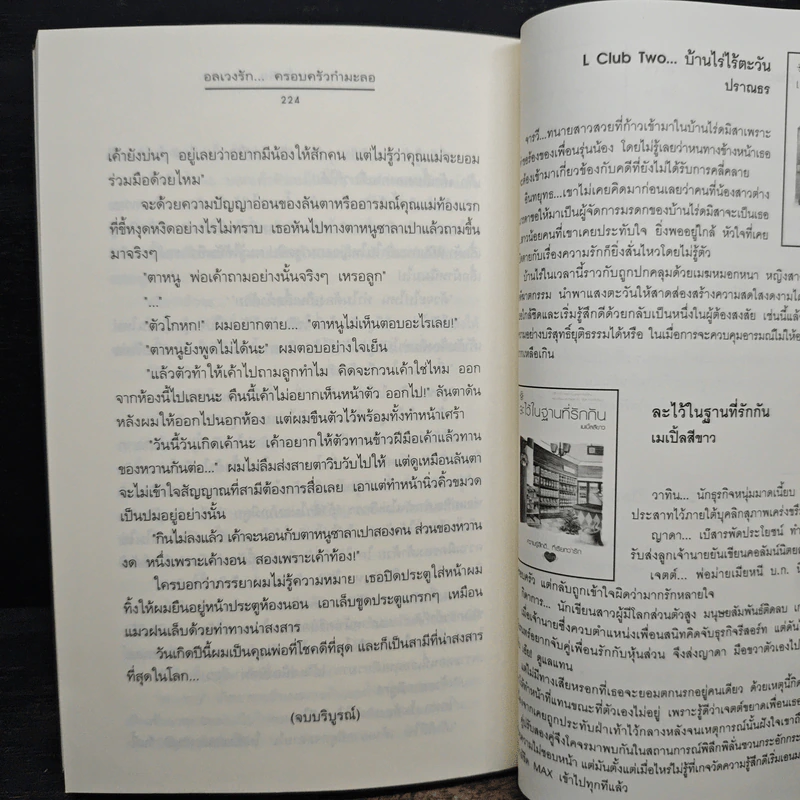 อลเวงรัก... ครอบครัวกำมะลอ
224
เค้ายังบ่นๆ อยู่เลยว่าอยากมีน้องให้สักคน แต่ไม่รู้ว่าคุณแม่จะยอม
ร่วมมือด้วยไหม"
จะด้วยความปัญญาอ่อนของลันตาหรืออารมณ์คุณแม่ท้องแรก
ที่ขี้หงุดหงิดอย่างไรไม่ทราบ เธอหันไปทางตาหนูซาลาเปาแล้วถามขึ้น
มาจริงๆ
"ตาหนู พ่อเค้าถามอย่างนั้นจริงๆ เหรอลูก"
"..."
"ตัวโกหก!" ผมอยากตาย... "ตาหนูไม่เห็นตอบอะไรเลย!"
"ตาหนูยังพูดไม่ได้นะ" ผมตอบอย่างใจเย็น
"แล้วตัวท้าให้เค้าไปถามลูกทำไม คิดจะกวนเค้าใช่ไหม ออก
จากห้องนี้ไปเลยนะ คืนนี้เค้าไม่อยากเห็นหน้าตัว ออกไป!" ลันตาดัน
หลังผมให้ออกไปนอกห้อง แต่ผมขืนตัวไว้พร้อมทั้งทำหน้าเศร้า
"วันนี้วันเกิดเค้านะ เค้าอยากให้ตัวทานข้าวฝีมือเค้าแล้วทาน
ของหวานกันต่อ..." ผมไม่ลืมส่งสายตาวิบวับไปให้ แต่ดูเหมือนลันตา
จะไม่เข้าใจสัญญาณที่สามีต้องการสื่อเลย เอาแต่ทำหน้านิ่วคิ้วขมวด
เป็นปมอยู่อย่างนั้น
"กินไม่ลงแล้ว เค้าจะนอนกับตาหนูซาลาเปาสองคน ส่วนของหวาน
งด หนึ่งเพราะเค้างอน สองเพราะเค้าท้อง!"
ใครบอกว่าภรรยาผมไม่รู้ความหมาย เธอปิดประตูใส่หน้าผม
ทิ้งให้ผมยืนอยู่หน้าประตูห้องนอน เอาเล็บขูดประตูแกรกๆ เหมือน
แมวฝนเล็บด้วยท่าทางน่าสงสาร
วันเกิดปีนี้ผมเป็นคุณพ่อที่โชคดีที่สุด และก็เป็นสามีที่น่าสงสาร
ที่สุดในโลก...
(จบบริบูรณ์)
L Club Two... บ้านไร่ไร้ตะวัน
ปราณธร
จารวี...ทนายสาวสวยที่ก้าวเข้ามาในบ้านไร่ดมิสาเพราะ
ร้องของเพื่อนรุ่นน้อง โดยไม่รู้เลยว่าหนทางข้างหน้าเธอ
ต้องเข้ามาเกี่ยวข้องกับคดีที่ยังไม่ได้รับการคลี่คลาย
...เขาไม่เคยคิดมาก่อนเลยว่าคนที่น้องสาวต่าง
ขอให้มาเป็นผู้จัดการมรดกของบ้านไร่ดมิสาจะเป็นเธอ
สาวน้อยคนที่เขาเคยประทับใจ ยิ่งพออยู่ใกล้ หัวใจที่เคย
กับเรื่องความรักก็ยิ่งสั่นไหวโดยไม่รู้ตัว
บ้านไร่ในเวลานี้ราวกับถูกปกคลุมด้วยเมฆหมอกหนา หญิงสา
นำพาแสงตะวันให้สาดส่องสร้างความสดใสงดงามได้
และเริ่มรู้สึกดีด้วยกลับเป็นหนึ่งในผู้ต้องสงสัย เช่นนี้แล้ว
อย่างบริสุทธิ์ยุติธรรมได้หรือ ในเมื่อการจะควบคุมอารมณ์ไม่ให้อ
เหลือเกิน
ละไว้ในฐานที่รักกัน
เมเปิ้ลสีขาว
ละไว้ในฐานที่รักกัน
เมเปิ้ลสีขาว
วาทิน... นักธุรกิจหนุ่มมาดเนี้ยบ
ประสาทไว้ภายใต้บุคลิกสุภาพเคร่งขรึ
ญาดา... เบ๊สารพัดประโยชน์ ทำ
รับส่งลูกเจ้านายยันเขียนคอลัมน์นิตย
เจตต์... พ่อม่ายเมียหนี บ.ก. นิ
ครอบครัว แต่กลับถูกเข้าใจผิดว่ามากรักหลายใจ
กิดาการ... นักเขียนสาวผู้มีโลกส่วนตัวสูง มนุษยสัมพันธ์ติดลบ
เมื่อเจ้านายซึ่งควบตำแหน่งเพื่อนสนิทคิดจับธุรกิจรีสอร์ท แต่ดัน
อยากจับคู่เพื่อนรักกับหุ้นส่วน จึงส่งญาดา มือขวาตัวเองไป
ดูแลแทน
แต่ไม่มีทางเสียหรอกที่เธอจะยอมตกนรกอยู่คนเดียว ด้วยเหตุนี้กิด
ทำหน้าที่แทนขณะที่ตัวเองไม่อยู่ เพราะรู้ดีว่าเจตต์ขยาดเพื่อนเธอ
จากเคยถูกประทับฝ่าเท้าไว้กลางหลังจนเหตุการณ์นั้นฝังใจเขาถึ
สองคู่จึงโคจรมาพบกันในสถานการณ์พิลึกพิลั่นชวนกระอักกระ
ความไม่ชอบหน้า แต่มันตั้งแต่เมื่อไหร่ไม่รู้ที่เกจวัดความรู้สึกดีเริ่มเอนม
MAX เข้าไปทุกทีแล้ว